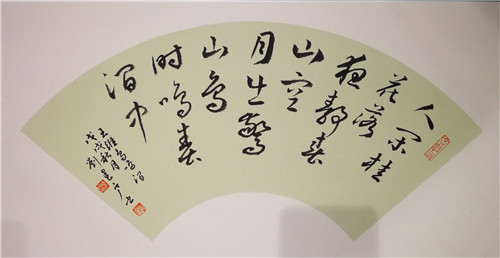 人闲桂
花落
夜静春
山空
月出驚
山鸟
时鸣春
涧中
王维鸟鸣涧
戊戌秋月